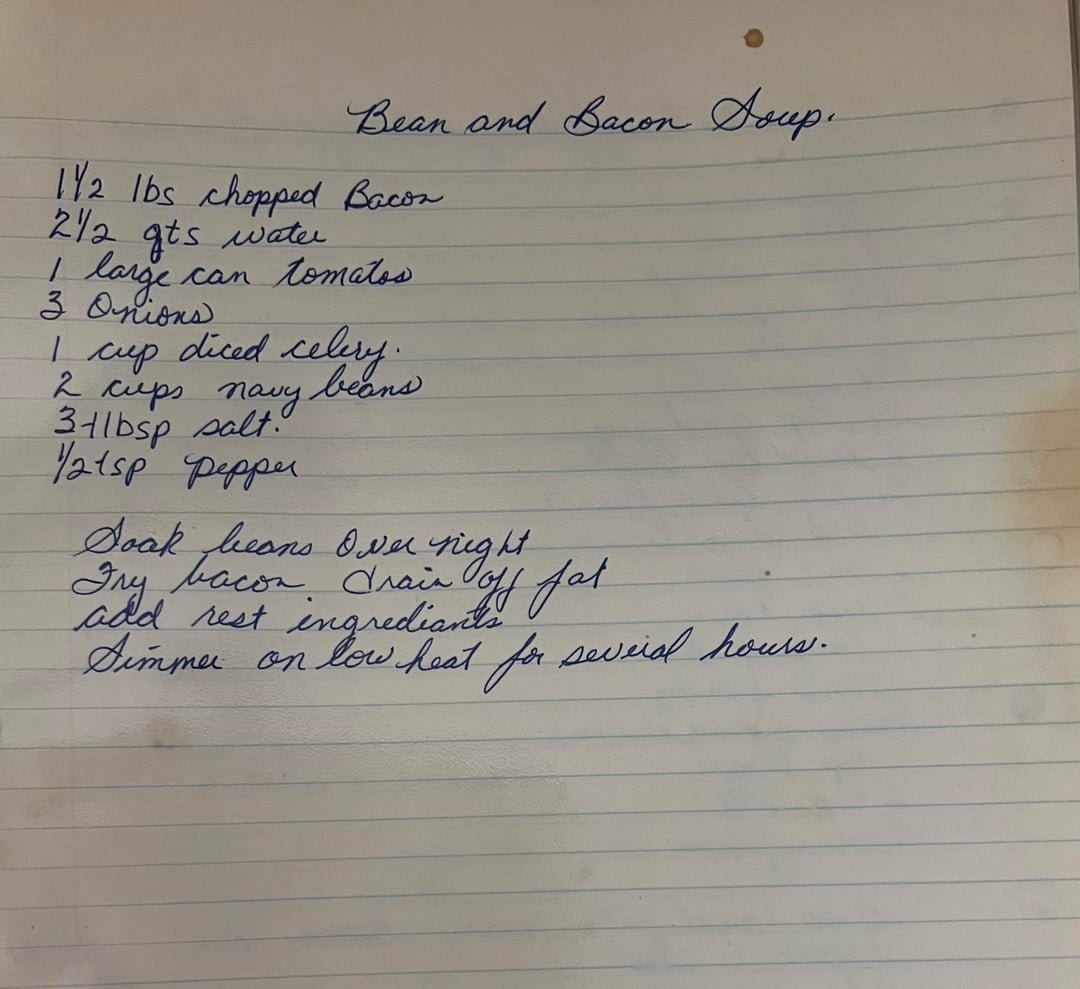 Bean and Bacon Soup.
1 1/2 lbs chopped Bacon
2 1/2 qts water
1 large can tomatos
3 Onions
1 cup diced celery.
2 cups navy beans
3 tlbsp salt.
1/2 tsp pepper
Soak beans Over night
Fry bacon drain off fat
add rest ingrediants
Simmer on low heat for several hours.